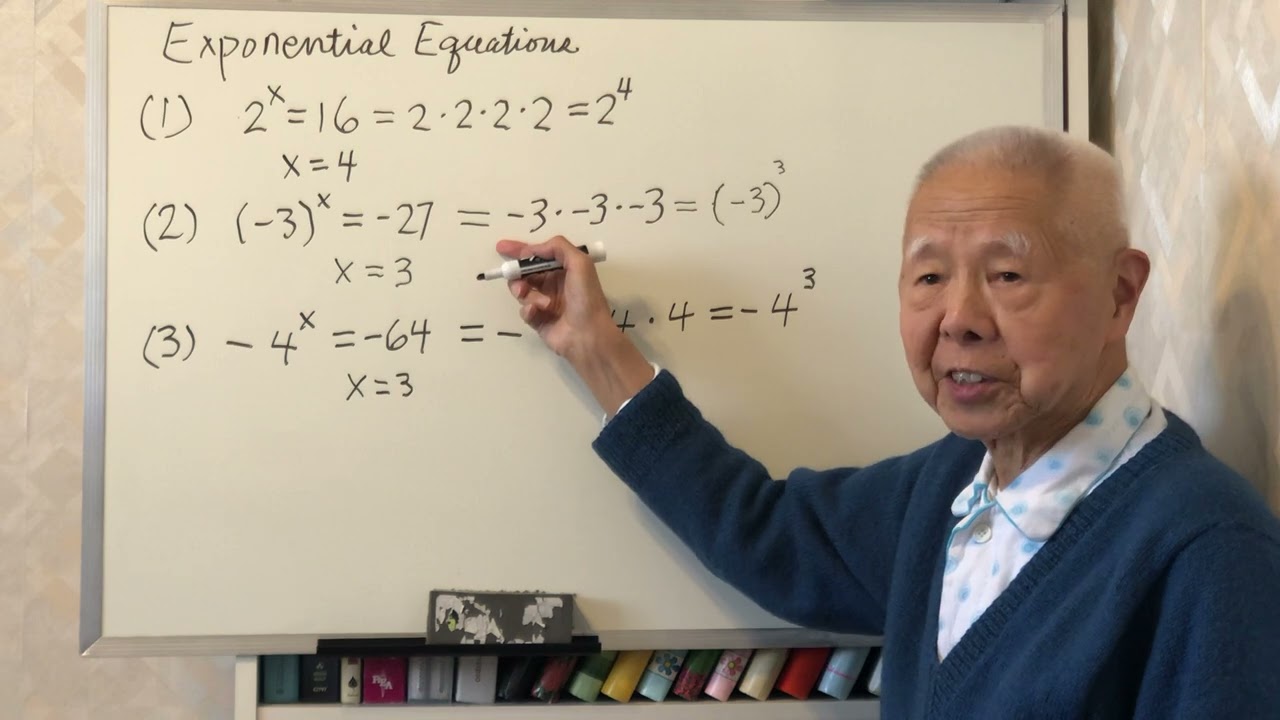 Exponential Equations
(1) 2^x = 16 = 2 · 2 · 2 · 2 = 2^4
x = 4
(2) (-3)^x = -27 = -3 · -3 · -3 = (-3)^3
x = 3
(3) - 4^x = -64 = - 4 · 4 = - 4^3
x = 3